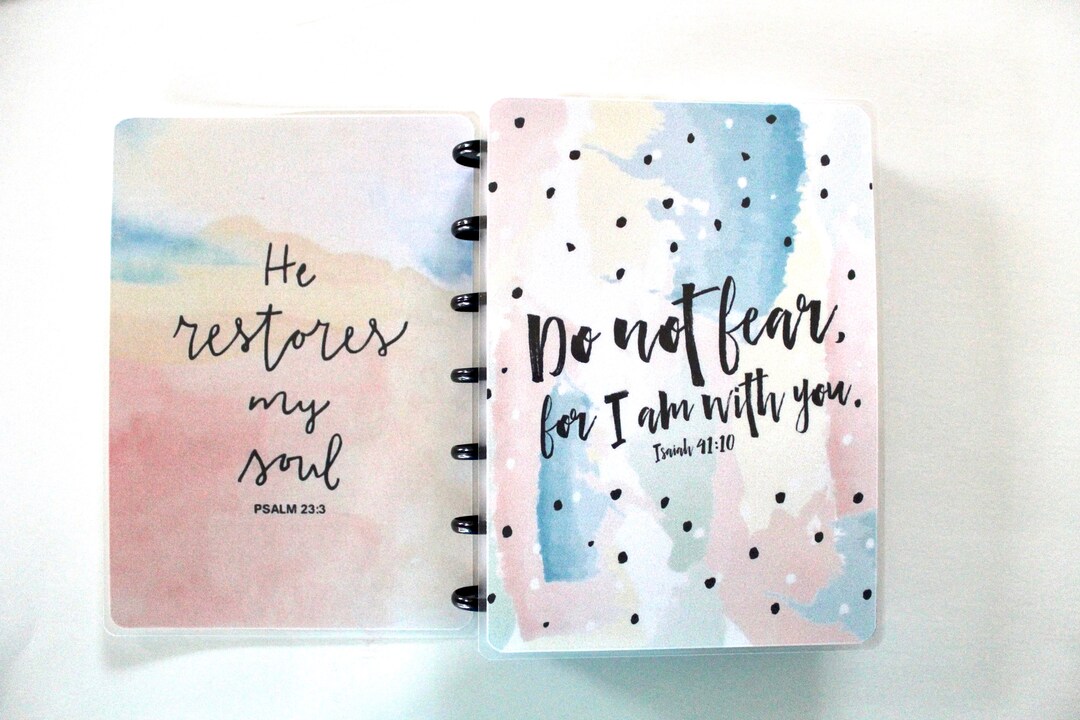 He
restores
my
soul
PSALM 23:3
Do not fear,
for I am with you.
Isaiah 41:10